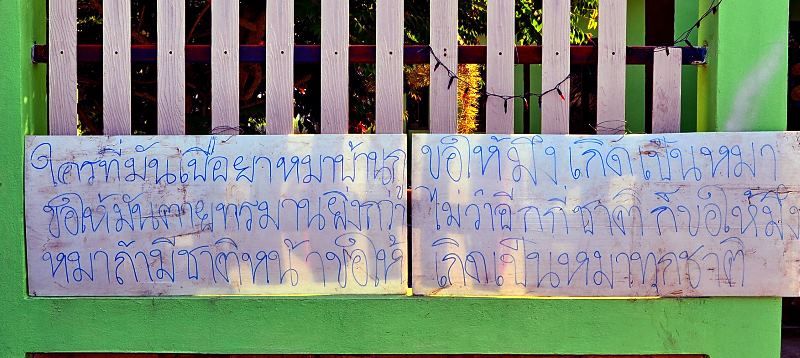 ใครที่มันเบื่อยาหมาบ้านกู
ขอให้มันตายทรมานยิ่งกว่า
หมาถ้ามีชาติหน้าขอให้
ขอให้มึงเกิดเป็นหมา
ไม่ว่าอีกกี่ชาติก็ขอให้มึง
เกิดเป็นหมาทุกชาติ